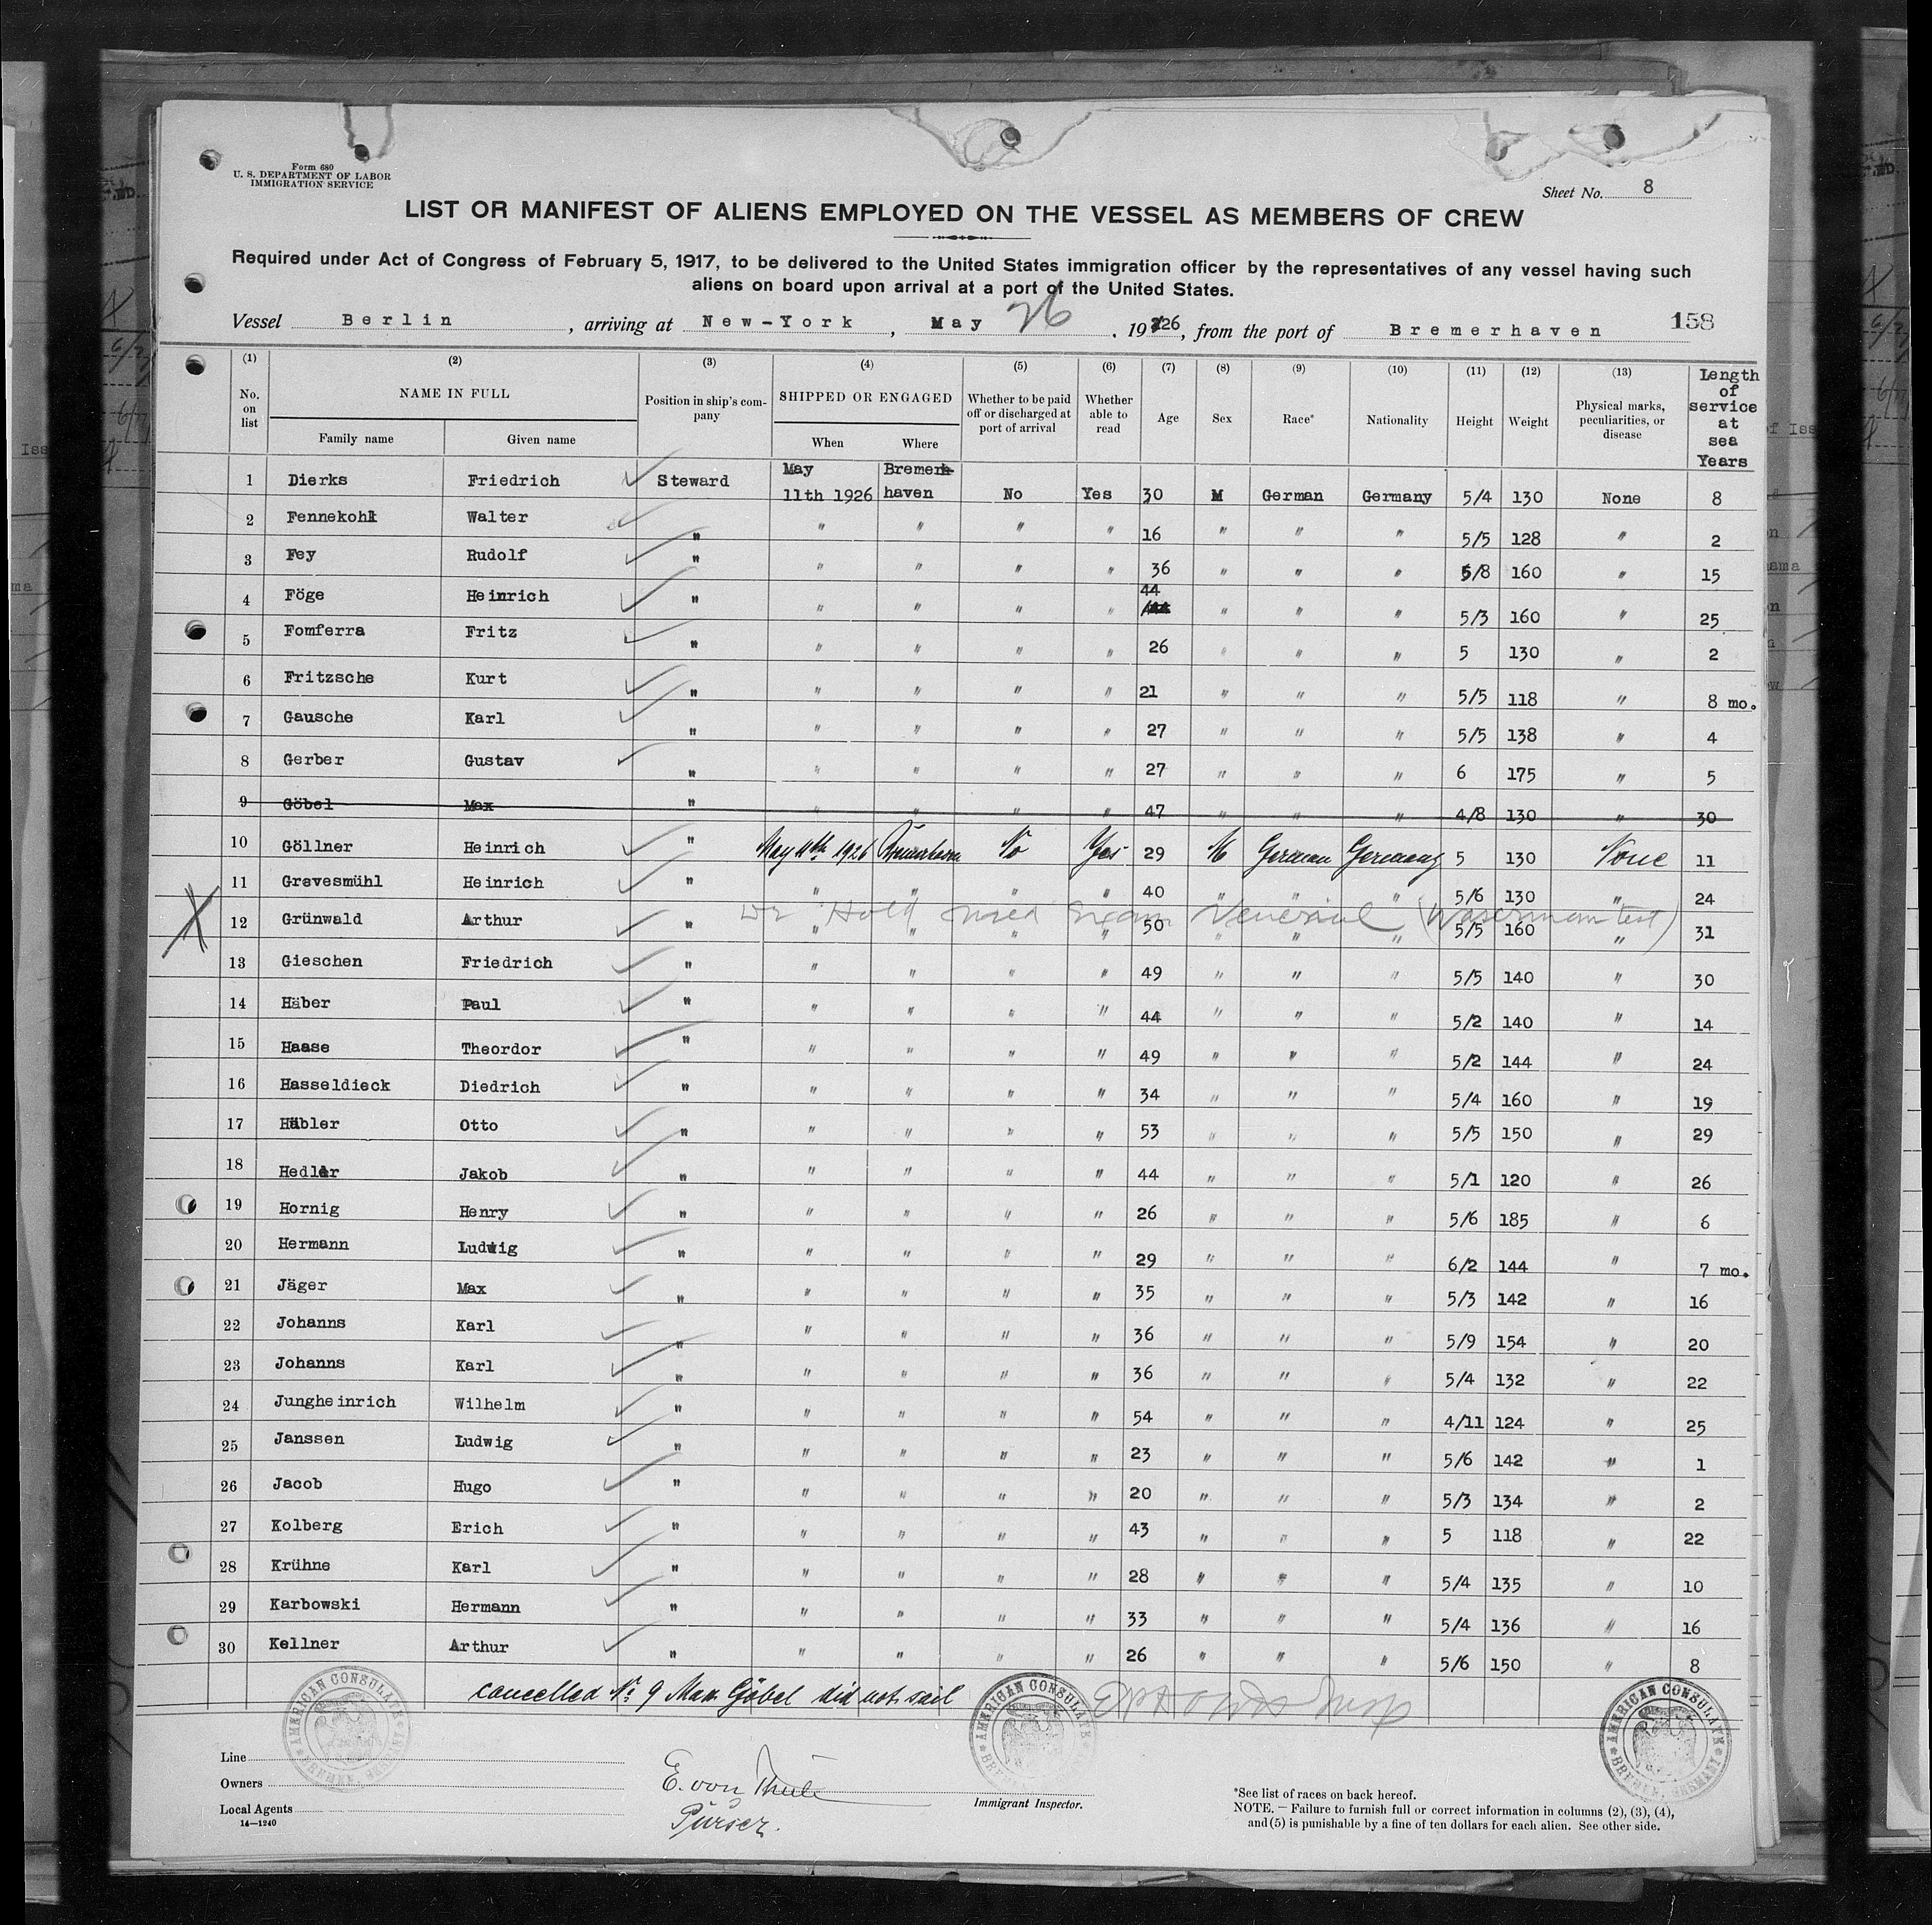 Form 680
U. S. DEPARTMENT OF LABOR
IMMIGRATION SERVICE
Sheet No. 8
LIST OR MANIFEST OF ALIENS EMPLOYED ON THE VESSEL AS MEMBERS OF CREW
Required under Act of Congress of February 5, 1917, to be delivered to the United States immigration officer by the representatives of any vessel having such
aliens on board upon arrival at a port of the United States.
Vessel Berlin, arriving at New-York, May 26, 1926, from the port of Bremerhaven 158
(1) (2) (3) (4) (5) (6) (7) (8) (9) (10) (11) (12) (13)
No. on list NAME IN FULL Family name Given name Position in ship's company SHIPPED OR ENGAGED When Where Whether to be paid off or discharged at port of arrival Whether able to read Age Sex Race* Nationality Height Weight Physical marks, peculiarities, or disease Length of service at sea Years
1 Dierks Friedrich Steward May 11th 1926 Bremerhaven No Yes 30 M German Germany 5/4 130 None 8
2 Fennekohl Walter " " " " " 16 " " " 5/5 128 " 2
3 Fey Rudolf " " " " " 36 " " " 5/8 160 " 15
4 Föge Heinrich " " " " " 44 " " " 5/3 160 " 25
5 Fomferra Fritz " " " " " 26 " " " 5 130 " 2
6 Fritzsche Kurt " " " " " 21 " " " 5/5 118 " 8 mo.
7 Gausche Karl " " " " " 27 " " " 5/5 138 " 4
8 Gerber Gustav " " " " " 27 " " " 6 175 " 5
9 Göbel Max " " " " " 47 " " " 4/8 130 " 30
10 Göllner Heinrich " May 11th 1926 Bremerhaven No Yes 29 M German Germany 5 130 None 11
11 Grevesmühl Heinrich " " " " " 40 " " " 5/6 130 " 24
Hold med exam Venereal (Wasserman test)
12 Grünwald Arthur " " " " " 50 " " " 5/5 160 " 31
13 Gieschen Friedrich " " " " " 49 " " " 5/5 140 " 30
14 Häber Paul " " " " " 44 " " " 5/2 140 " 14
15 Haase Theordor " " " " " 49 " " " 5/2 144 " 24
16 Hasseldieck Diedrich " " " " " 34 " " " 5/4 160 " 19
17 Häbler Otto " " " " " 53 " " " 5/5 150 " 29
18 Hedler Jakob " " " " " 44 " " " 5/1 120 " 26
19 Hornig Henry " " " " " 26 " " " 5/6 185 " 6
20 Hermann Ludwig " " " " " 29 " " " 6/2 144 " 7 mo.
21 Jäger Max " " " " " 35 " " " 5/3 142 " 16
22 Johanns Karl " " " " " 36 " " " 5/9 154 " 20
23 Johanns Karl " " " " " 36 " " " 5/4 132 " 22
24 Jungheinrich Wilhelm " " " " " 54 " " " 4/11 124 " 25
25 Janssen Ludwig " " " " " 23 " " " 5/6 142 " 1
26 Jacob Hugo " " " " " 20 " " " 5/3 134 " 2
27 Kolberg Erich " " " " " 43 " " " 5 118 " 22
28 Krühne Karl " " " " " 28 " " " 5/4 135 " 10
29 Karbowski Hermann " " " " " 33 " " " 5/4 136 " 16
30 Kellner Arthur " " " " " 26 " " " 5/6 150 " 8
cancelled No. 9 Max Göbel did not sail
AMERICAN CONSULATE BREMEN, GERMANY
AMERICAN CONSULATE
AMERICAN CONSULATE BREMEN, GERMANY
Line
Owners
Local Agents
14—1240
E. von
Purser.
Immigrant Inspector.
*See list of races on back hereof.
NOTE.—Failure to furnish full or correct information in columns (2), (3), (4),
and (5) is punishable by a fine of ten dollars for each alien. See other side.